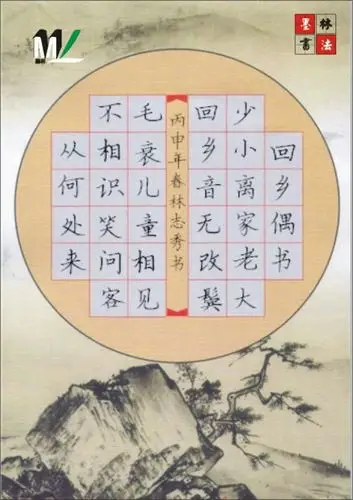 墨林
書法
回乡偶书
少小离家老大
回乡音无改鬓
丙申年春林志秀书
毛衰儿童相见
不相识笑问客
从何处来